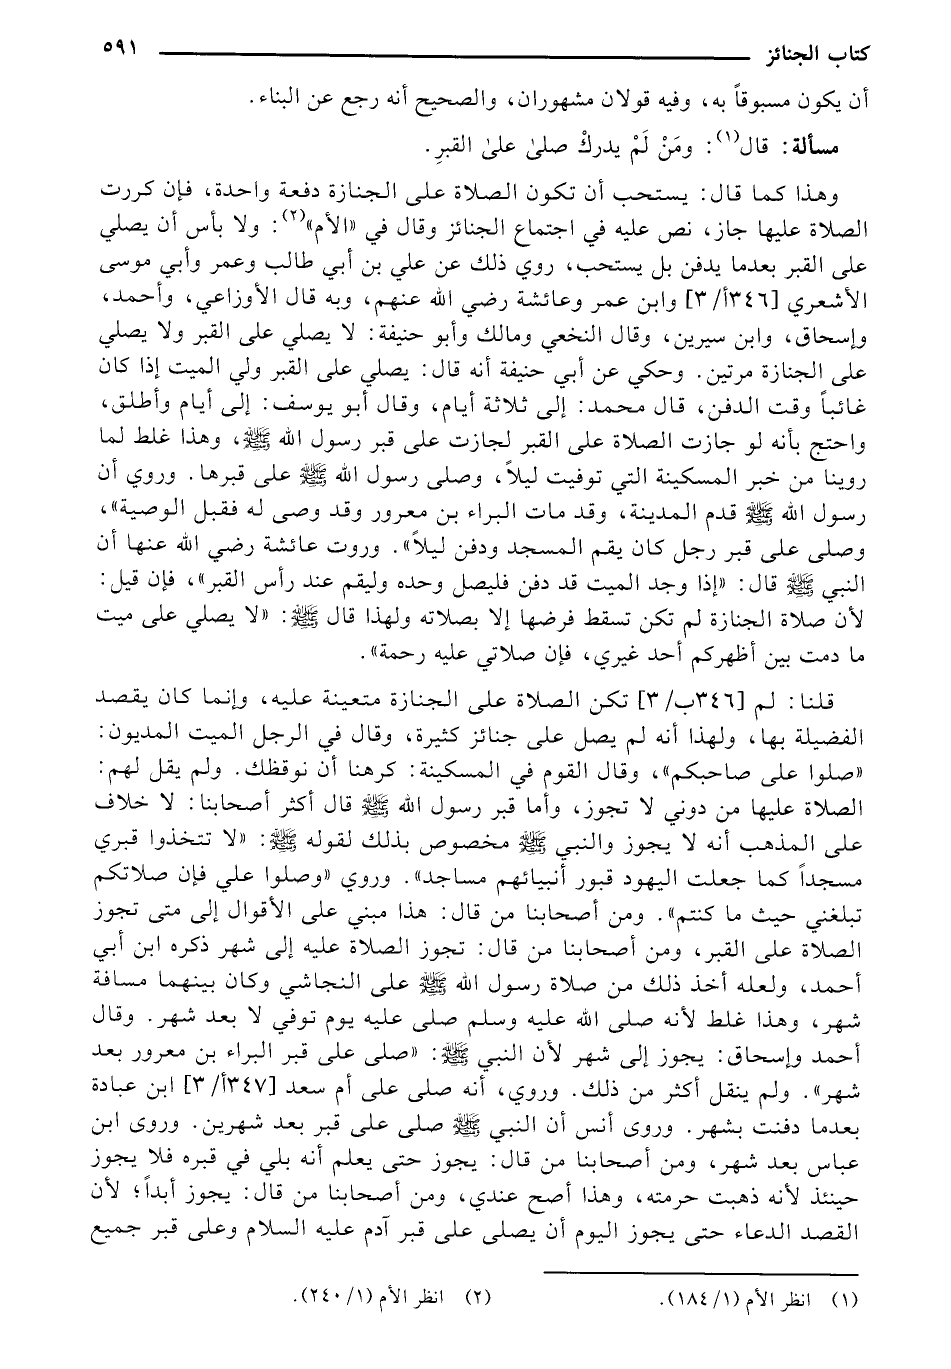 كتاب الجنائز ٥٩١
أن يكون مسبوقاً به، وفيه قولان مشهوران، والصحيح أنه رجع عن البناء.
مسألة: قال(١): ومَنْ لَمْ يدركْ صلىٰ علىٰ القبرِ.
وهذا كما قال: يستحب أن تكون الصلاة على الجنازة دفعة واحدة، فإن كررت
الصلاة عليها جاز، نص عليه في اجتماع الجنائز وقال في «الأم»(٢): ولا بأس أن يصلي
على القبر بعدما يدفن بل يستحب، روي ذلك عن علي بن أبي طالب وعمر وأبي موسى
الأشعري [٣٤٦أ/ ٣] وابن عمر وعائشة رضي الله عنهم، وبه قال الأوزاعي، وأحمد،
وإسحاق، وابن سيرين، وقال النخعي ومالك وأبو حنيفة: لا يصلي على القبر ولا يصلي
على الجنازة مرتين. وحكي عن أبي حنيفة أنه قال: يصلي على القبر ولي الميت إذا كان
غائباً وقت الدفن، قال محمد: إلى ثلاثة أيام، وقال أبو يوسف: إلى أيام وأطلق،
واحتج بأنه لو جازت الصلاة على القبر لجازت على قبر رسول الله ﷺ، وهذا غلط لما
روينا من خبر المسكينة التي توفيت ليلاً، وصلى رسول الله ﷺ على قبرها. وروي أن
رسول الله ﷺ قدم المدينة، وقد مات البراء بن معرور وقد وصى له فقبل الوصية»،
وصلى على قبر رجل كان يقم المسجد ودفن ليلاً». وروت عائشة رضي الله عنها أن
النبي ﷺ قال: «إذا وجد الميت قد دفن فليصل وحده وليقم عند رأس القبر»، فإن قيل:
لأن صلاة الجنازة لم تكن تسقط فرضها إلا بصلاته ولهذا قال ﷺ: «لا يصلي على ميت
ما دمت بين أظهركم أحد غيري، فإن صلاتي عليه رحمة».
قلنا: لم [٣٤٦ب/ ٣] تكن الصلاة على الجنازة متعينة عليه، وإنما كان يقصد
الفضيلة بها، ولهذا أنه لم يصل على جنائز كثيرة، وقال في الرجل الميت المديون:
«صلوا على صاحبكم»، وقال القوم في المسكينة: كرهنا أن نوقظك. ولم يقل لهم:
الصلاة عليها من دوني لا تجوز، وأما قبر رسول الله ﷺ قال أكثر أصحابنا: لا خلاف
على المذهب أنه لا يجوز والنبي ﷺ مخصوص بذلك لقوله ﷺ: «لا تتخذوا قبري
مسجداً كما جعلت اليهود قبور أنبيائهم مساجد». وروي «وصلوا علي فإن صلاتكم
تبلغني حيث ما كنتم». ومن أصحابنا من قال: هذا مبني على الأقوال إلى متى تجوز
الصلاة على القبر، ومن أصحابنا من قال: تجوز الصلاة عليه إلى شهر ذكره ابن أبي
أحمد، ولعله أخذ ذلك من صلاة رسول الله ﷺ على النجاشي وكان بينهما مسافة
شهر، وهذا غلط لأنه صلى الله عليه وسلم صلى عليه يوم توفي لا بعد شهر. وقال
أحمد وإسحاق: يجوز إلى شهر لأن النبي ﷺ: «صلى على قبر البراء بن معرور بعد
شهر». ولم ينقل أكثر من ذلك. وروي، أنه صلى على أم سعد [٣٤٧أ/ ٣] ابن عبادة
بعدما دفنت بشهر. وروى أنس أن النبي ﷺ صلى على قبر بعد شهرين. وروى ابن
عباس بعد شهر، ومن أصحابنا من قال: يجوز حتى يعلم أنه بلي في قبره فلا يجوز
حينئذ لأنه ذهبت حرمته، وهذا أصح عندي، ومن أصحابنا من قال: يجوز أبداً؛ لأن
القصد الدعاء حتى يجوز اليوم أن يصلى على قبر آدم عليه السلام وعلى قبر جميع
(١) انظر الأم (١/ ١٨٤). (٢) انظر الأم (١/ ٢٤٠).